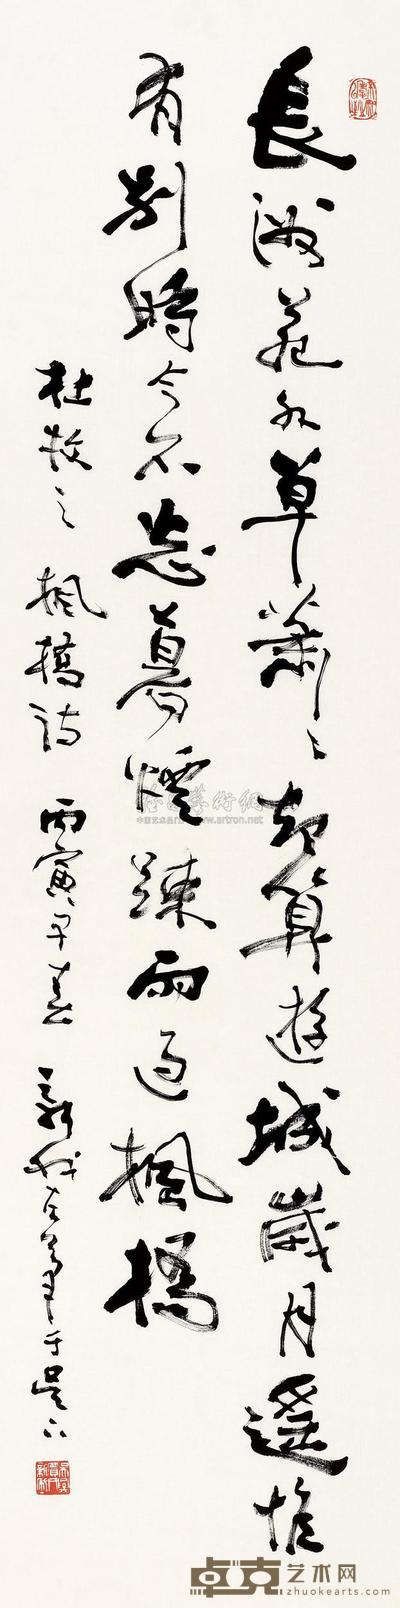 長洲苑外草蕭〻却算遊城歲月遙惟
有別時今不忘暮煙疎雨過楓橋
杜牧之楓橋詩 丙寅早春 新我左筆于吳下
www.artron.net
卓克艺术网
zhuokearts.com